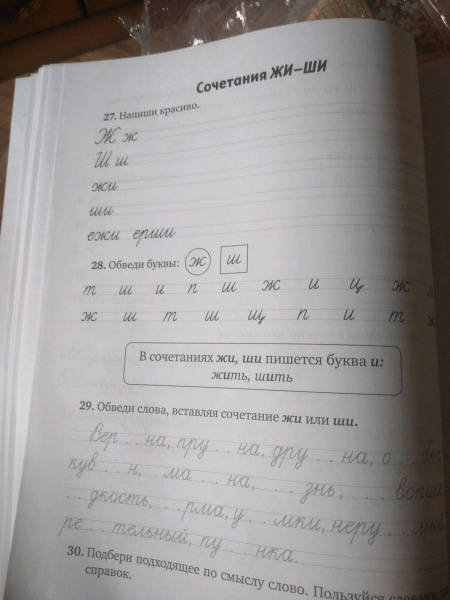 Сочетания ЖИ–ШИ
27. Напиши красиво.
Ж ж
Ш ш
жи
ши
ежи ерши
28. Обведи буквы: ж ш
т ш и п ш ж и ц ж
ж ш т ш щ п и т ж
В сочетаниях жи, ши пишется буква и:
жить, шить
29. Обведи слова, вставляя сочетание жи или ши.
Вер . . . на, пру . . . на, дру . . . на, о . . . бка
кув . . . н, ма . . . на, . . . знь, . . .
. . . дкость, . . . рма, у . . . мки, неру . . .
ре . . . тельный, пу . . . нка.
30. Подбери подходящее по смыслу слово. Пользуйся словами
справок.